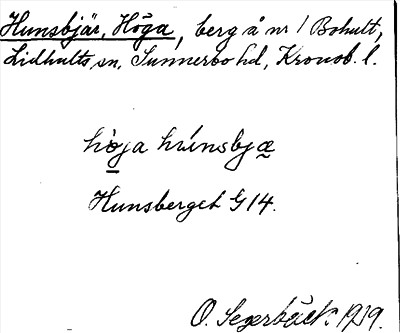 Hunsbjär, Höga, berg å nr 1 Bohult,
Lidhults sn, Sunnerbo hd, Kronob. l.
höja húnsbjæ
Hunsberget G 14.
O. Segerbäck. 1919.